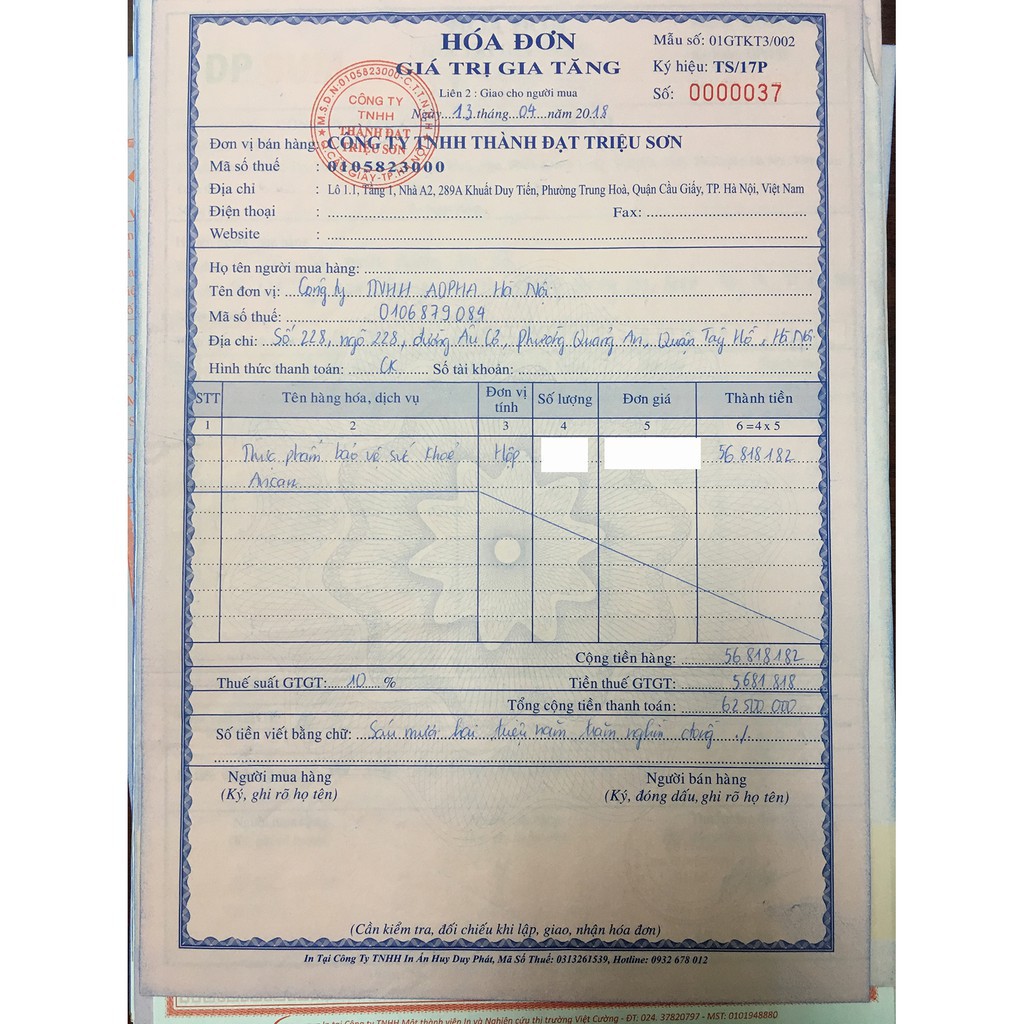 HÓA ĐƠN
GIÁ TRỊ GIA TĂNG
Liên 2 : Giao cho người mua
Ngày...13.tháng...04...năm 2018
Mẫu số: 01GTKT3/002
Ký hiệu: TS/17P
Số: 0000037
M.S.D.N:0105823000-C.T.T.N.H.H
CÔNG TY
TNHH
THÀNH ĐẠT
TRIỆU SƠN
Q.CẦU GIẤY-TP.HÀ NỘI
Đơn vị bán hàng: CÔNG TY TNHH THÀNH ĐẠT TRIỆU SƠN
Mã số thuế : 0105823000
Địa chỉ : Lô 1.1, Tầng 1, Nhà A2, 289A Khuất Duy Tiến, Phường Trung Hoà, Quận Cầu Giấy, TP. Hà Nội, Việt Nam
Điện thoại : Fax:
Website :
Họ tên người mua hàng:
Tên đơn vị: Công ty TNHH ADPHA Hà Nội
Mã số thuế: 0106879084
Địa chỉ: Số 228, ngõ 228, đường Âu Cơ, phường Quảng An, Quận Tây Hồ, Hà Nội
Hình thức thanh toán: CK Số tài khoản:
STT Tên hàng hóa, dịch vụ Đơn vị tính Số lượng Đơn giá Thành tiền
1 2 3 4 5 6 = 4 x 5
Thực phẩm bảo vệ sức khoẻ Hộp 56 818 182
Ancan
Cộng tiền hàng: 56 818 182
Thuế suất GTGT: 10 % Tiền thuế GTGT: 5 681 818
Tổng cộng tiền thanh toán: 62 500 000
Số tiền viết bằng chữ: Sáu mươi hai triệu năm trăm nghìn đồng ./.
Người mua hàng Người bán hàng
(Ký, ghi rõ họ tên) (Ký, đóng dấu, ghi rõ họ tên)
(Cần kiểm tra, đối chiếu khi lập, giao, nhận hóa đơn)
In Tại Công Ty TNHH In Ấn Huy Duy Phát, Mã Số Thuế: 0313261539, Hotline: 0932 678 012
In tại Công Ty TNHH Một thành viên In và Nghiên cứu thị trường Việt Cường - ĐT: 024. 37820797 - MST: 0101948880